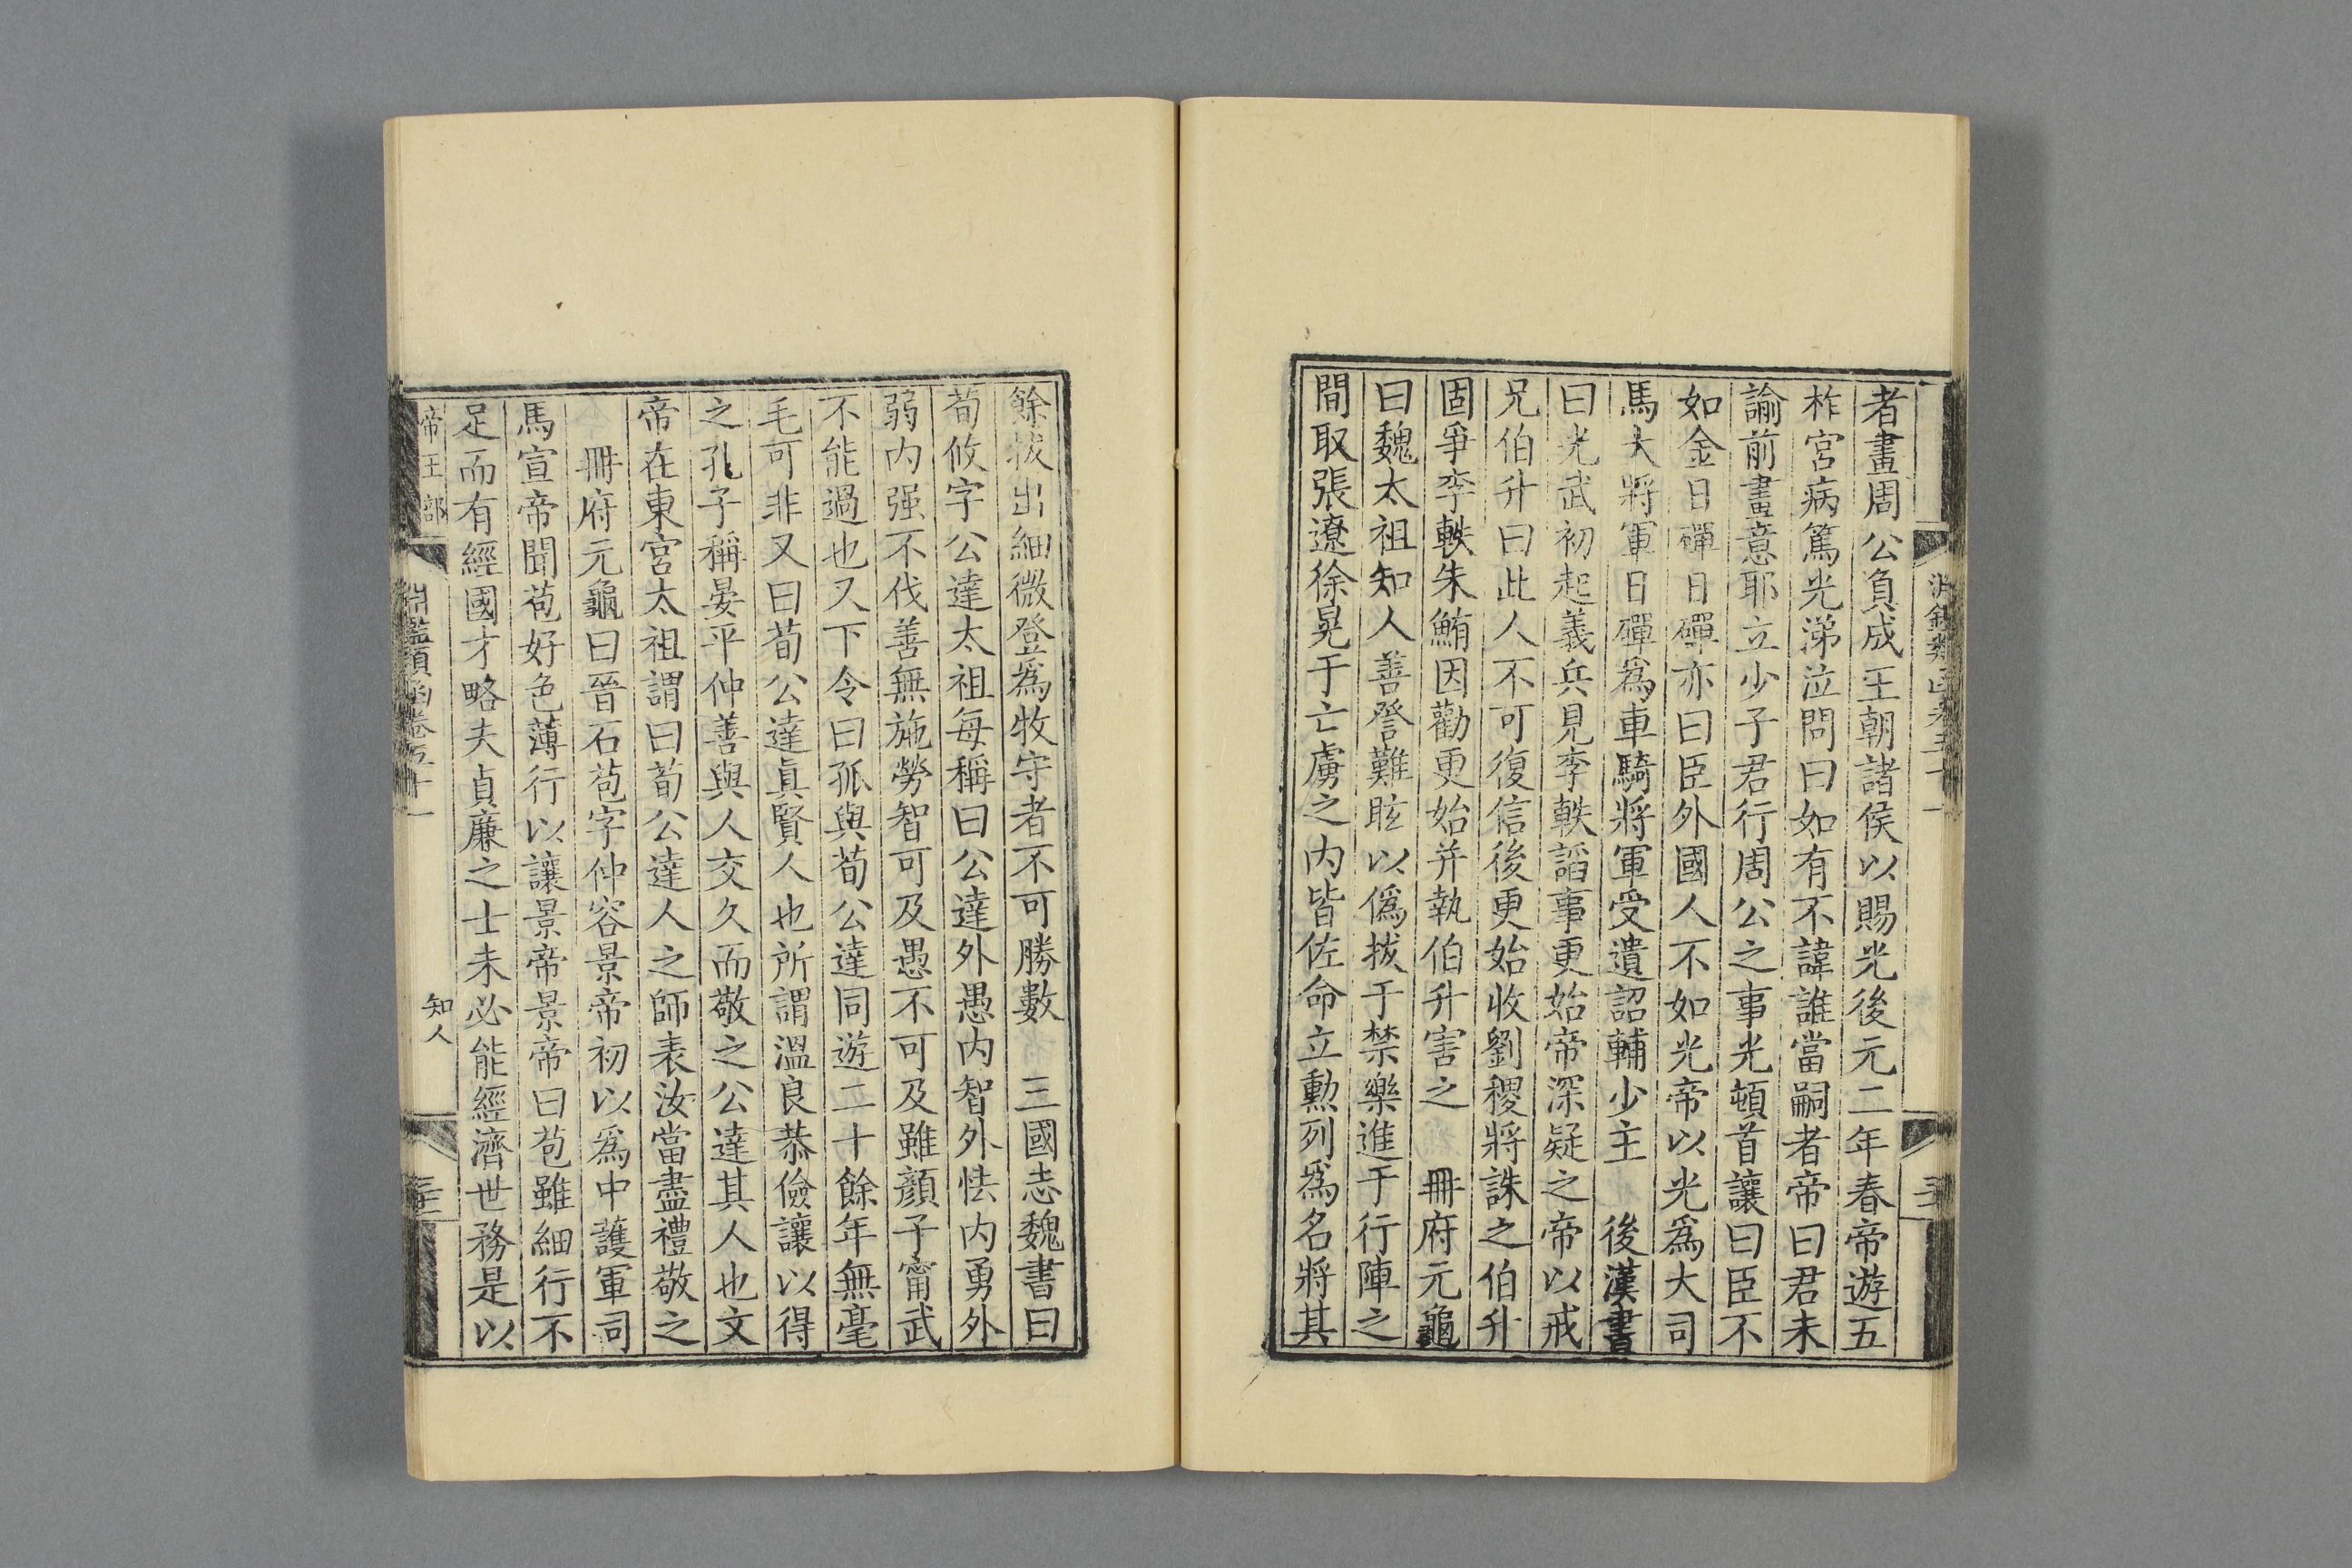 者畫周公負成王朝諸侯以賜光後元二年春帝遊五
柞宮病篤光涕泣問曰如有不諱誰當嗣者帝曰君未
諭前畫意耶立少子君行周公之事光頓首讓曰臣不
如金日磾日磾亦曰臣外國人不如光帝以光爲大司
馬大將軍日磾爲車騎將軍受遺詔輔少主　後漢書
曰光武初起義兵見李軼謟事更始帝深疑之帝以戒
兄伯升曰此人不可復信後更始收劉稷將誅之伯升
固爭李軼朱鮪因勸更始并執伯升害之　冊府元龜
曰魏太祖知人善詧難眩以僞拔于禁樂進于行陣之
間取張遼徐晃于亡虜之内皆佐命立勳列爲名將其
餘拔出細微登爲牧守者不可勝數　三國志魏書曰
荀攸字公達太祖每稱曰公達外愚内智外怯内勇外
弱内强不伐善無施勞智可及愚不可及雖顏子甯武
不能過也又下令曰孤與荀公達同遊二十餘年無毫
毛可非又曰荀公達眞賢人也所謂溫良恭儉讓以得
之孔子稱晏平仲善與人交久而敬之公達其人也文
帝在東宮太祖謂曰荀公達人之師表汝當盡禮敬之
冊府元龜曰晉石苞字仲容景帝初以爲中護軍司
馬宣帝聞苞好色薄行以讓景帝景帝曰苞雖細行不
足而有經國才略夫貞廉之士未必能經濟世務是以
帝王部
淵鑑類函卷五十一
知人